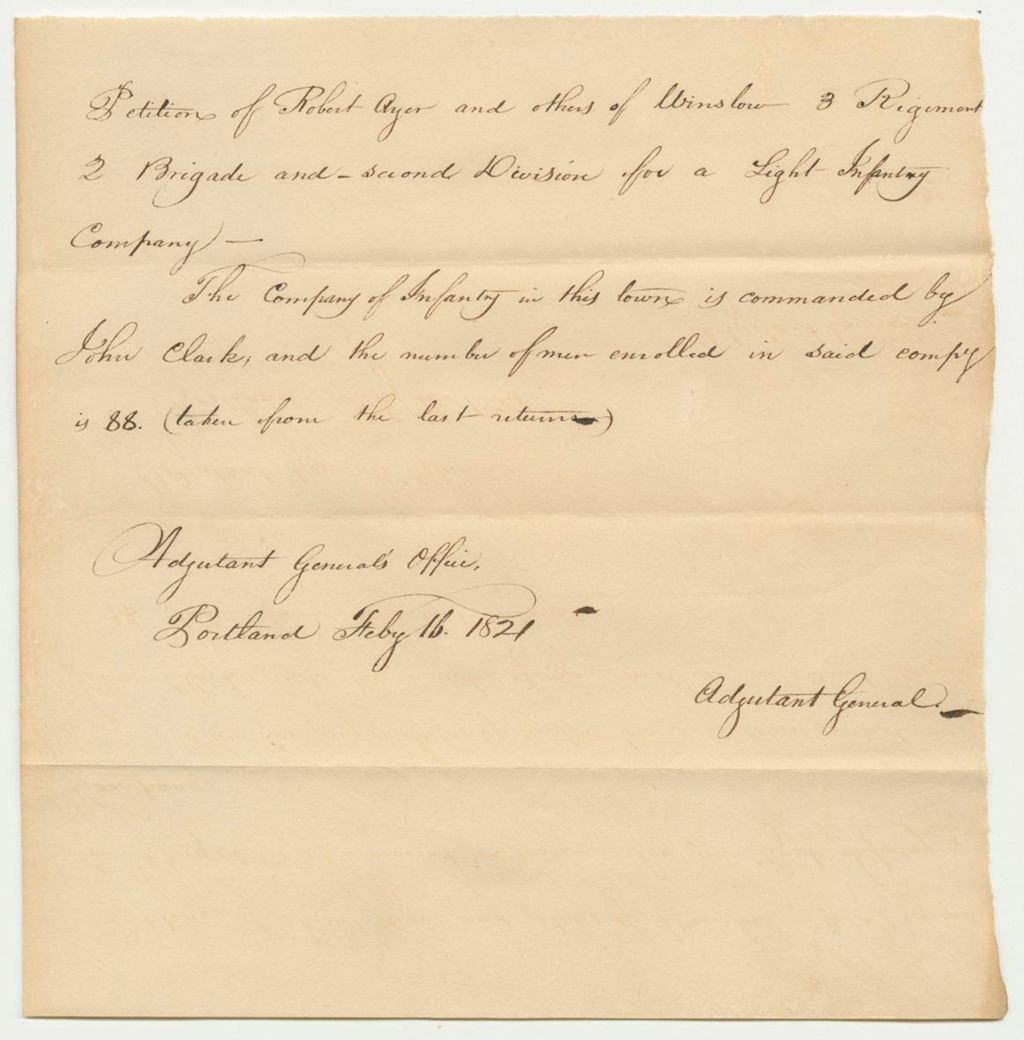 Petition of Robert Ayer and others of Winslow 3 Rigiment
2 Brigade and - second Division for a Light Infantry
Company —
The Company of Infantry in this town is commanded by
John Clark, and the number of men enrolled in said compy
is 88. (taken from the last returns)
Adjutant General's Office,
Portland Feby 16. 1821
Adjutant General.